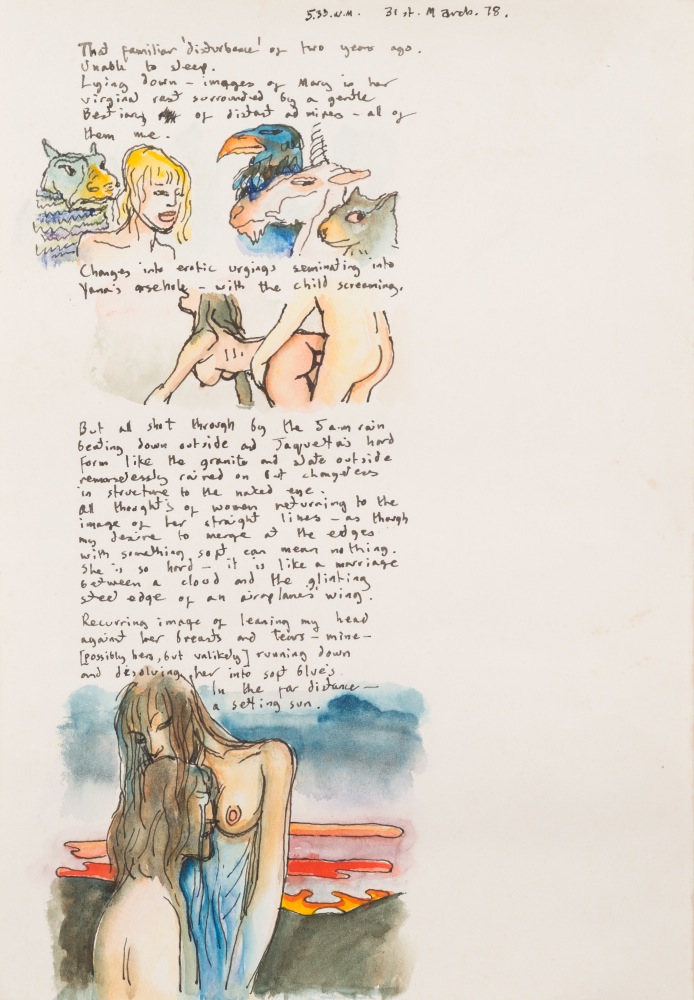 5.33. a.m. 31st. March. 78.
That familiar 'disturbance' of two years ago.
Unable to sleep.
Lying down – images of Mary in her
virginal rest surrounded by a gentle
Bestiary of distant admirers – all of
them me.
Changes into erotic urgings seminating into
Yana's arsehole – with the child screaming.
But all shot through by the 5am rain
beating down outside and Jaquetta's hard
form like the granite and slate outside
remorselessly rained on but changeless
in structure to the naked eye.
All thoughts of women returning to the
image of her straight lines – as though
my desire to merge at the edges
with something soft can mean nothing.
She is so hard – it is like a marriage
between a cloud and the glinting
steel edge of an airoplanes' wing.
Recurring image of leaning my head
against her breasts and tears – mine –
[possibly hers, but unlikely] running down
and disolving her into soft blues.
In the far distance –
a setting sun.